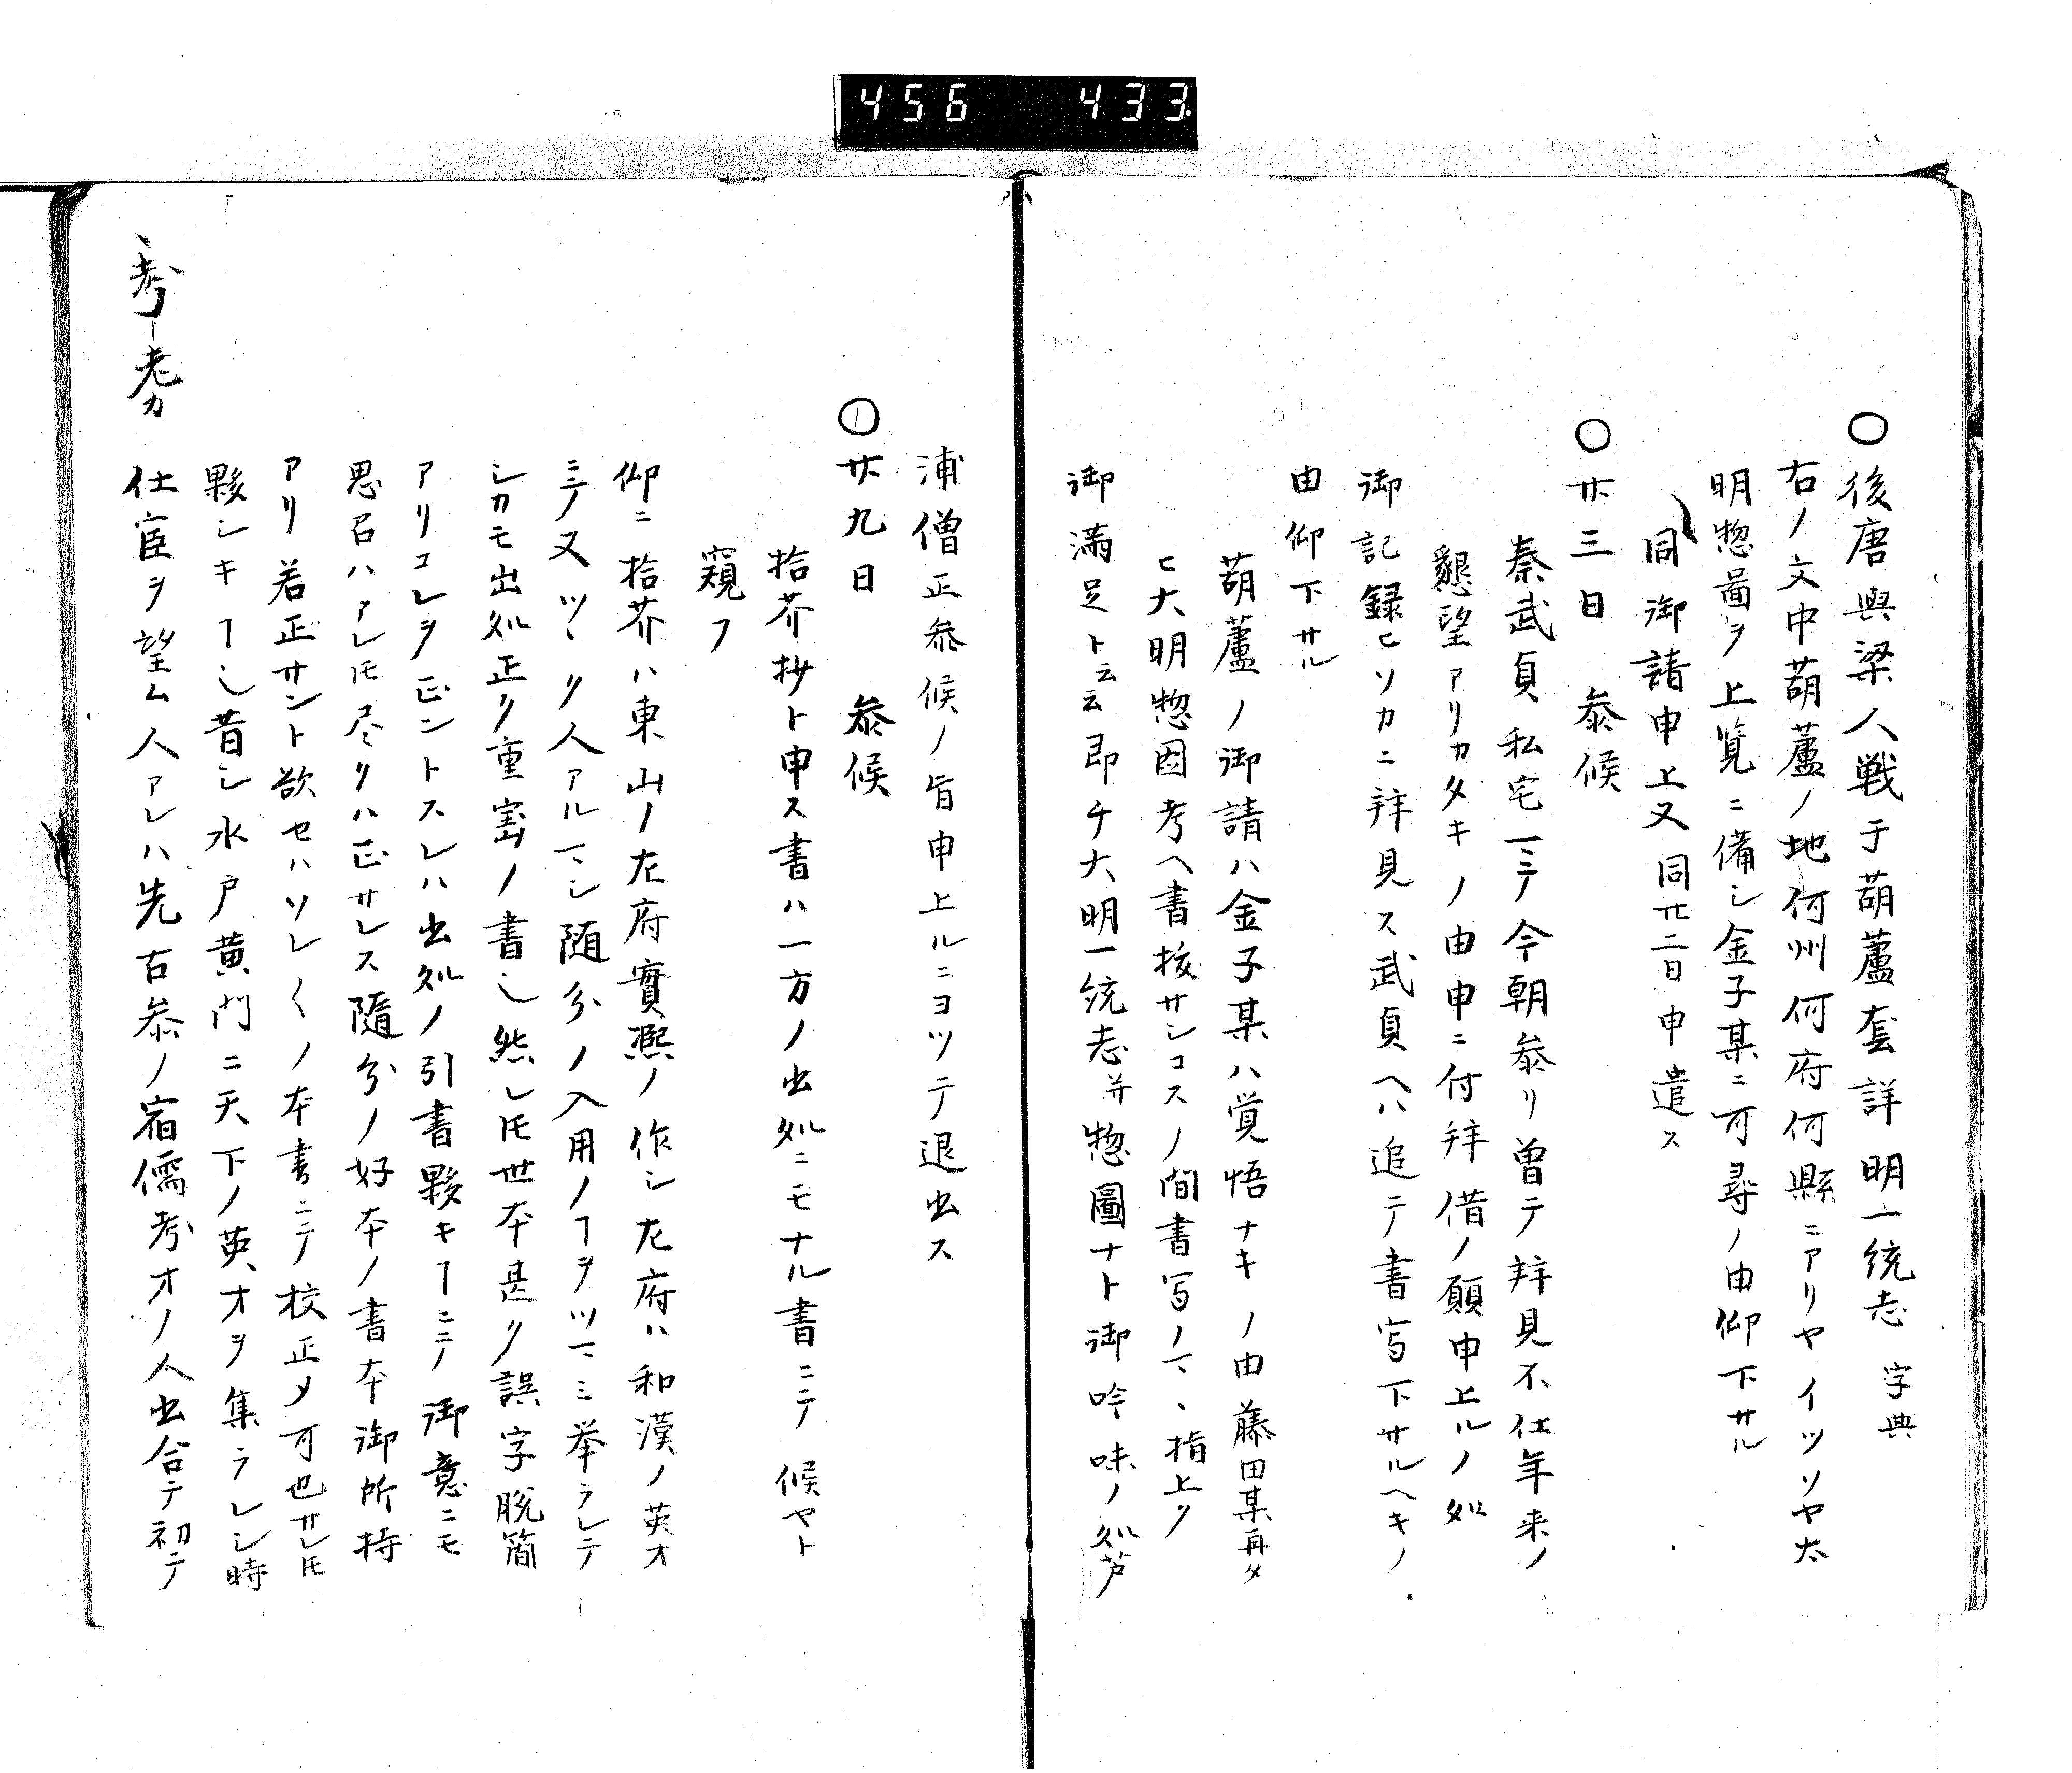 456 433
〇後唐與梁人戦于葫蘆套詳明一統志 字典
右ノ文中葫蘆ノ地何州何府何縣ニアリヤイツソヤ太
明惣啚ヲ上覧ニ備シ金子某ニ可尋ノ由仰下サル
同御請申上又同廿二日申遣ス
〇廿三日 参候
秦武貞私宅ヨヨテ今朝参リ曽テ拝見不仕年来ノ
懇望アリカタキノ由申ニ付拝借ノ願申上ルノ処
御記録ヒソカニ拝見ス武貞ヘハ追テ書写下サルヘキノ
由仰下サル
葫蘆ノ御請ハ金子某ハ覚悟ナキノ由藤田某再タ
ヒ大明惣図考ヘ書抜サシコスノ間書写ノマヽ指上ク
御満足ト云云即チ大明一統志并惣圖ナト御吟味ノ処芦
浦僧正参候ノ旨申上ルニヨツテ退出ス
〇廿九日 参候
拾芥抄ト申ス書ハ一方ノ出処ニモナル書ニテ候ヤト
窺フ
仰ニ拾芥ハ東山ノ左府實熈ノ作シ左府ハ和漢ノ英才
ニテ又ツヽク人アルマシ随分ノ入用ノヿヲツマミ挙ラレテ
シカモ出処正ク重宝ノ書也然レ𪜈世本甚タ誤字脱簡
アリコレヲ正ントスレハ出処ノ引書夥キヿニテ御意ニモ
思召ハアレ𪜈尽クハ正サレス随分ノ好本ノ書本御所持
アリ若正サント欲セハソレ〱ノ本書ニテ校正メ可也サレ𪜈
夥シキヿ也昔シ水戸黄門ニ天下ノ英才ヲ集ラレシ時
仕宦ヲ望ム人アレハ先古参ノ宿儒考才ノ人出合テ初テ
ヽ考ー老カ